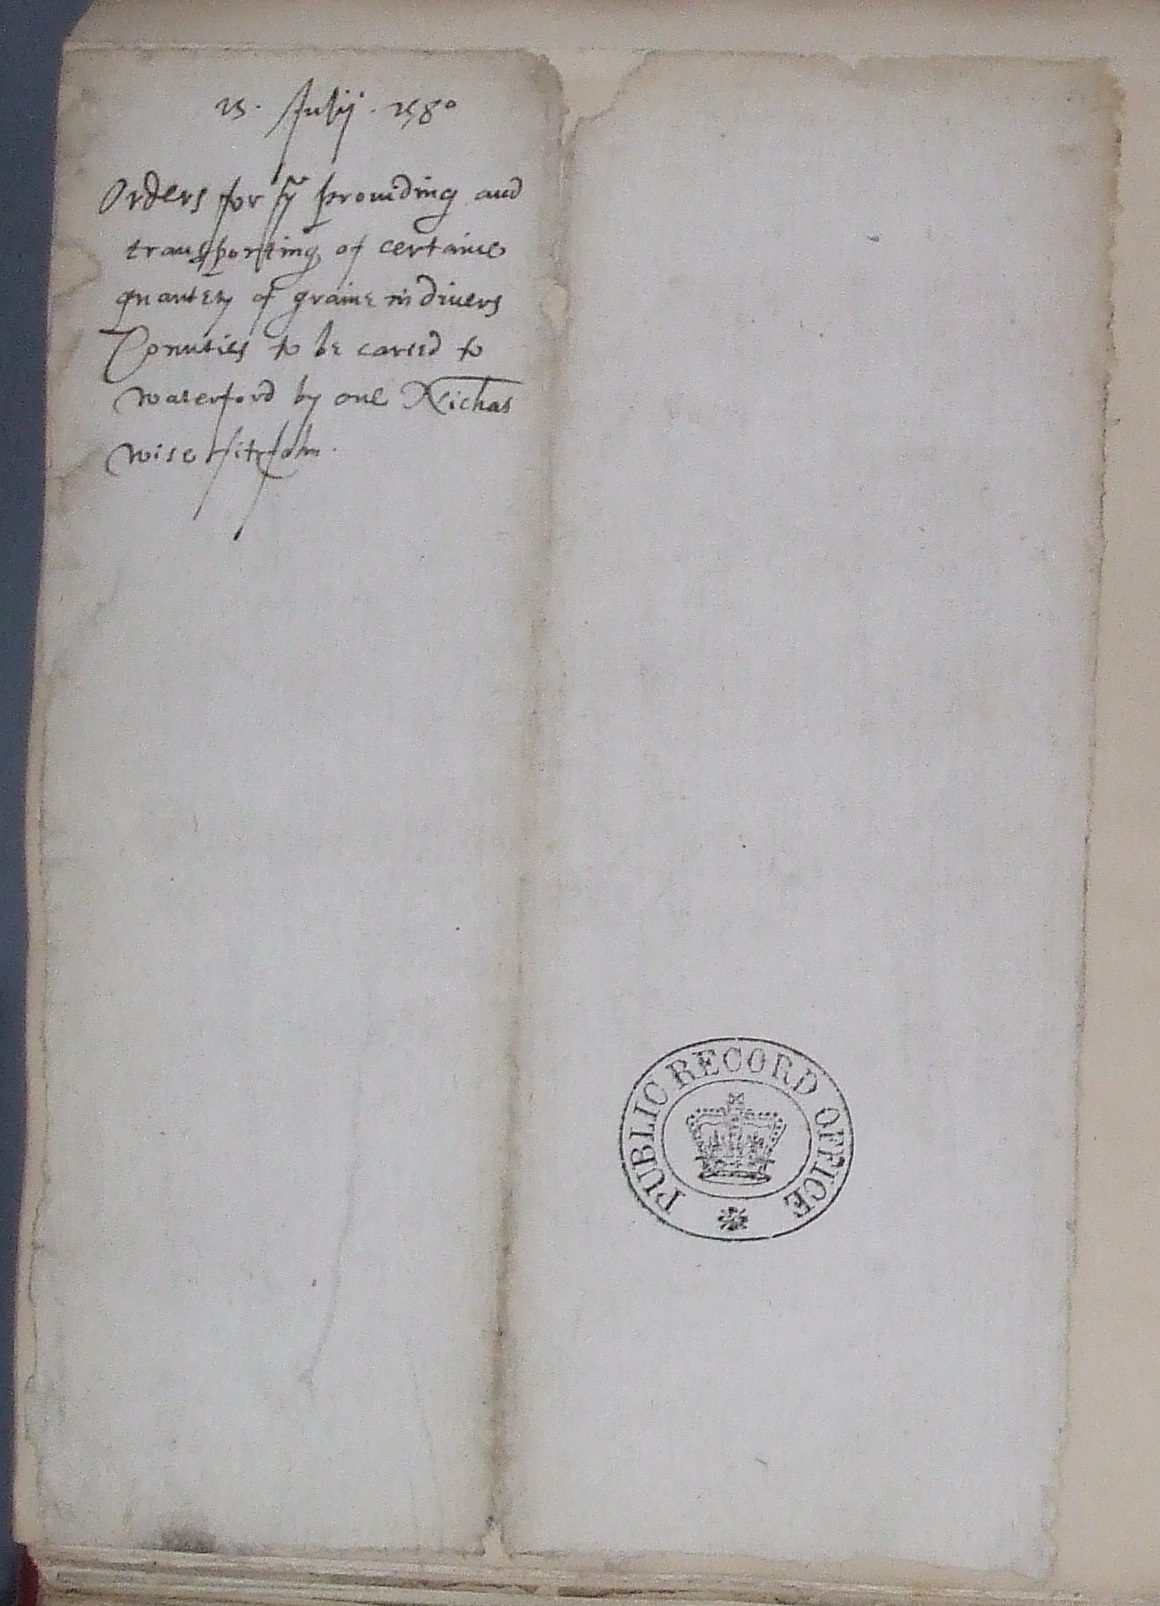 15. Julij. 1580
Orders for yͤ prouiding and
transporting of certaine
quantety of graine in divers
Counties to be caried to
waterford by one Nichas
wise fitzJohn.
PUBLIC RECORD OFFICE